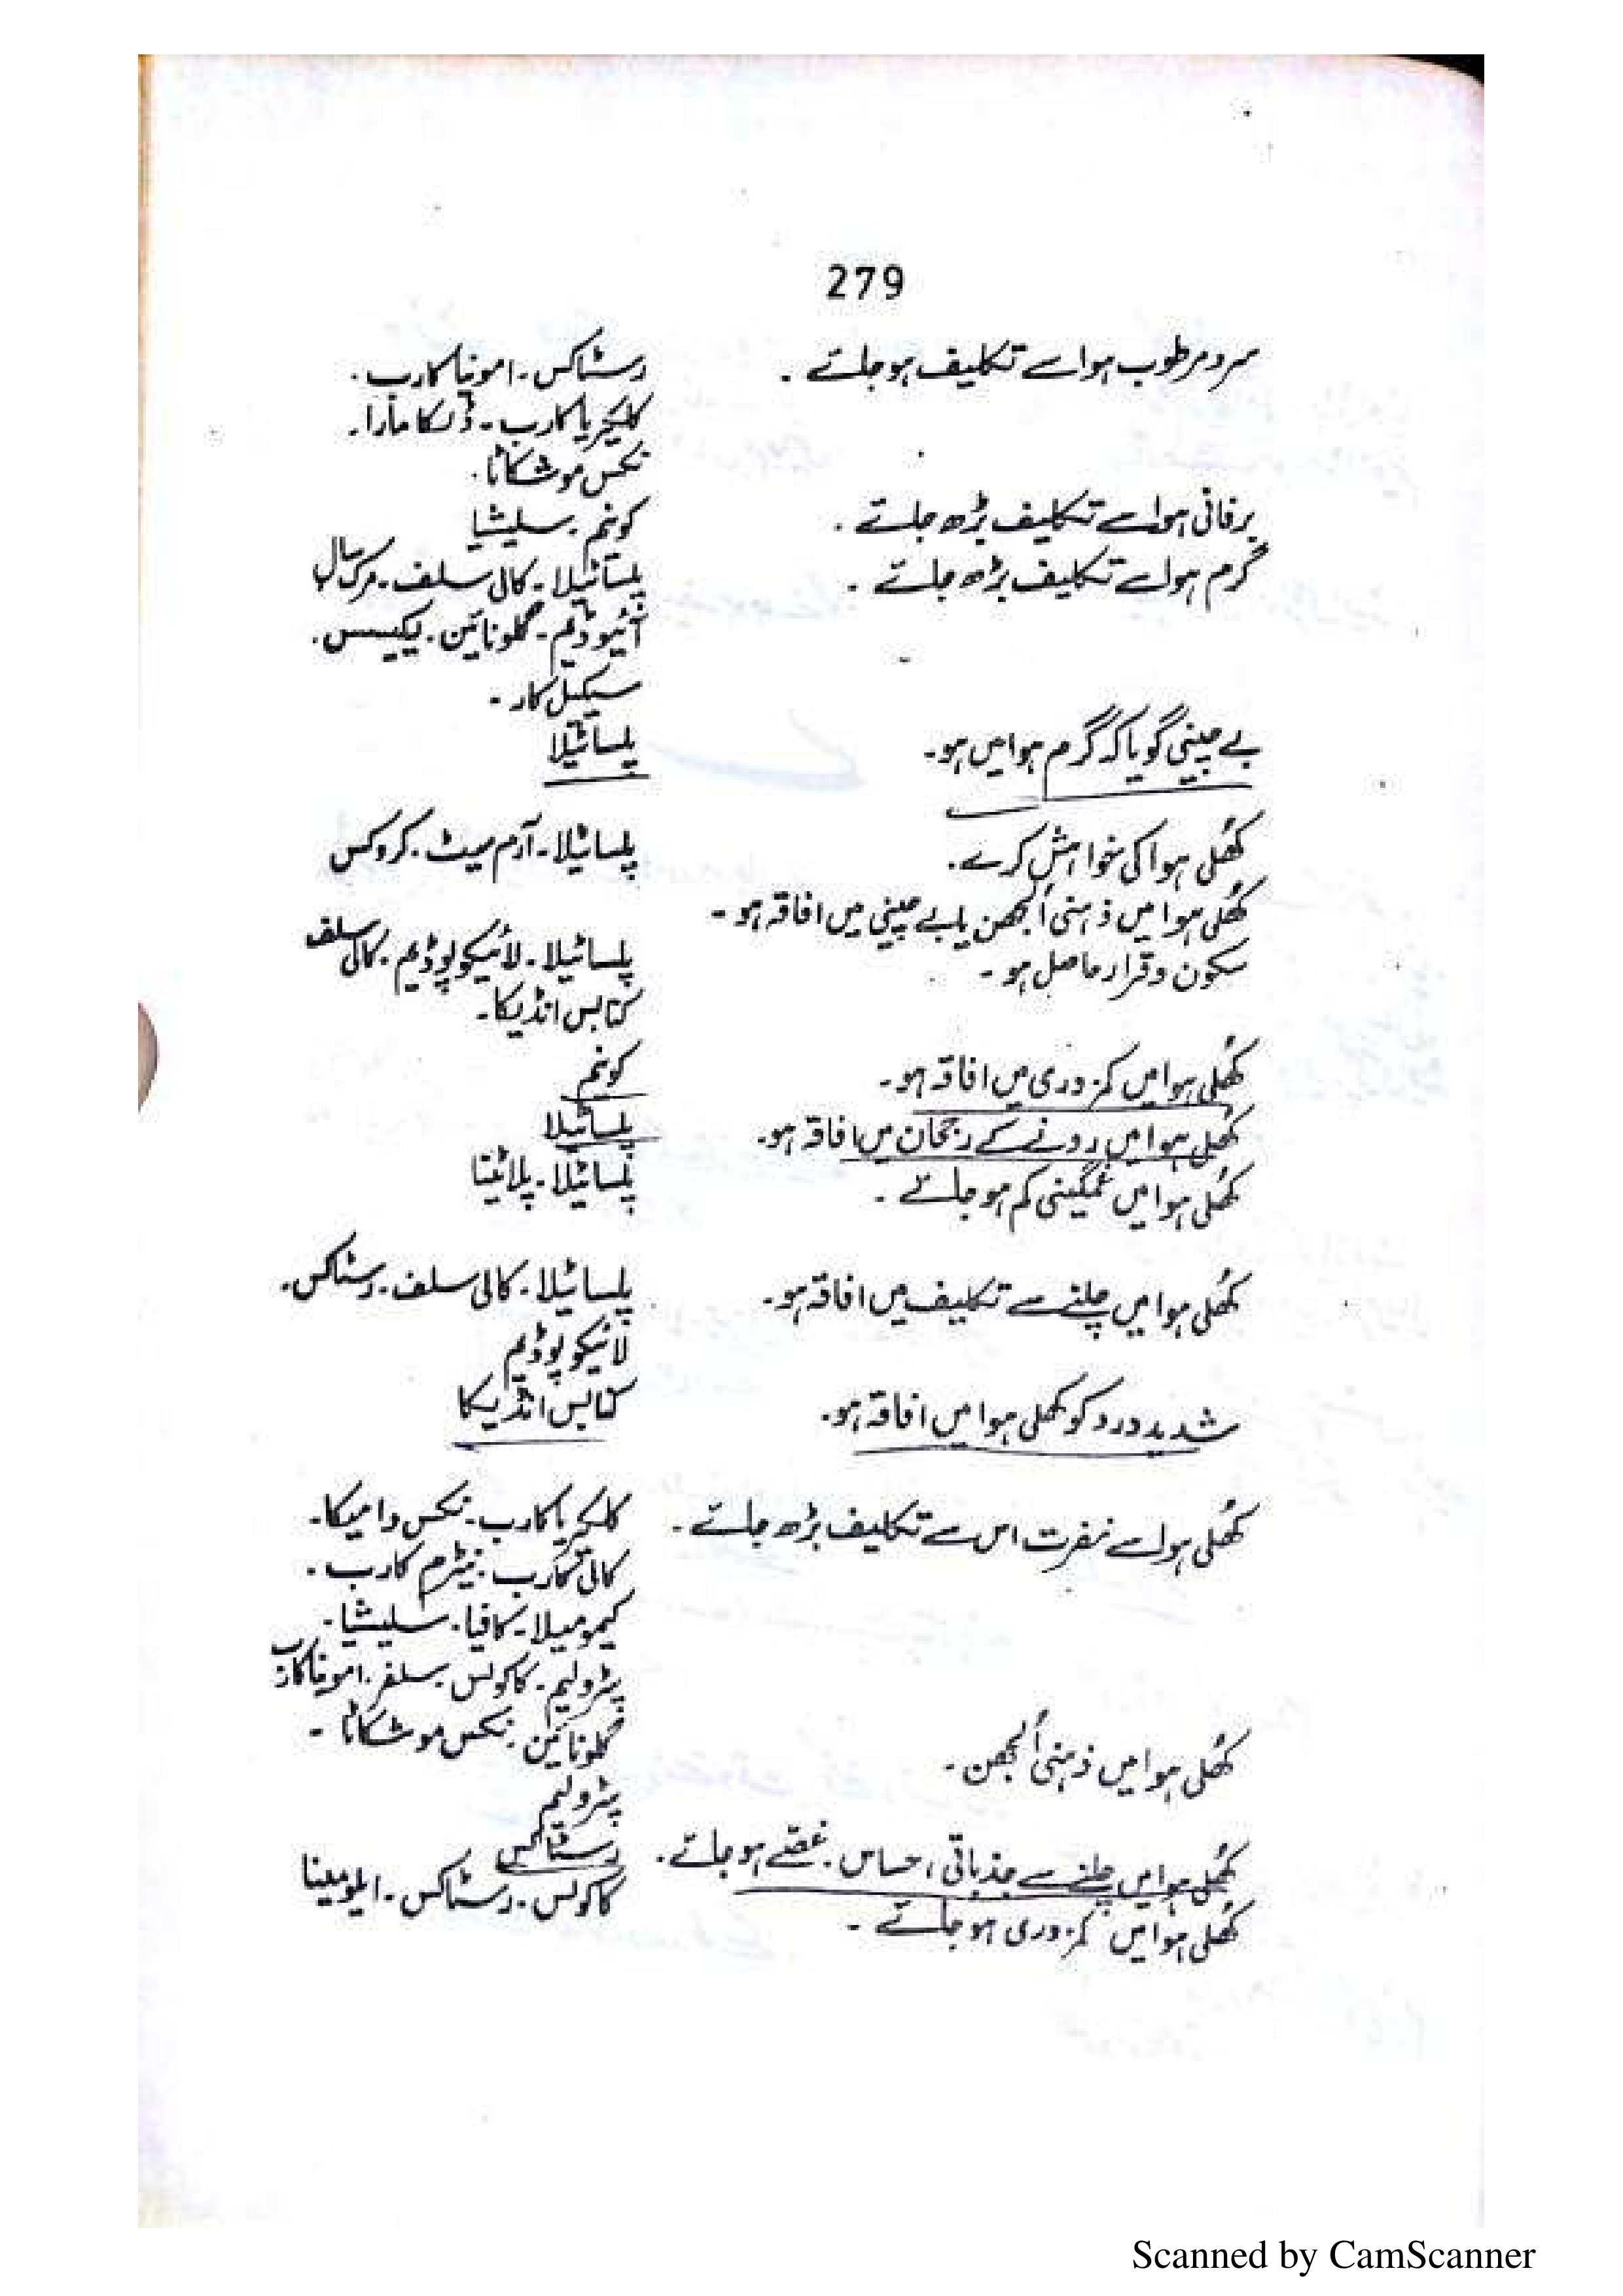 279
سرد مرطوب ہوا سے تکلیف ہو جائے ۔
رسٹاکس ۔ امونیا کارب ۔
کلیکریا کارب ۔ ڈلکا مارا ۔
نکس موشکاٹا ۔
برفانی ہوا سے تکلیف بڑھ جائے ۔
کونیم ۔ سلیشیا
گرم ہوا سے تکلیف بڑھ جائے ۔
پلساٹیلا ۔ کالی سلف ۔ مرک سال
آئیوڈیم ۔ گلونائین ۔ لیکیسس ۔
سیکیل کار ۔
بے چینی گویا کہ گرم ہوا میں ہو ۔
پلساٹیلا
کھُلی ہوا کی خواہش کرے ۔
پلساٹیلا ۔ آرم میٹ ۔ کروکس
کھُلی ہوا میں ذہنی اُلجھن یا بے چینی میں افاقہ ہو ۔
سکون و قرار حاصل ہو ۔
پلساٹیلا ۔ لائیکوپوڈیم ۔ کالی سلف
کنابس انڈیکا ۔
کھُلی ہوا میں کمزوری میں افاقہ ہو ۔
کونیم
کھُلی ہوا میں رونے کے رجحان میں افاقہ ہو ۔
پلساٹیلا
کھُلی ہوا میں غمگینی کم ہو جائے ۔
پلساٹیلا ۔ پلاٹینا
کھُلی ہوا میں چلنے سے تکلیف میں افاقہ ہو ۔
پلساٹیلا ۔ کالی سلف ۔ رسٹاکس ۔
لائیکوپوڈیم
شدید درد کو کھلی ہوا میں افاقہ ہو ۔
کنابس انڈیکا
کھُلی ہوا سے نفرت اس سے تکلیف بڑھ جائے ۔
کلیکریا کارب ۔ نکس وامیکا ۔
کالی کارب ۔ نیٹرم کارب ۔
کیمومیلا ۔ کافیا ۔ سلیشیا ۔
پٹرولیم ۔ کاکولس ۔ سلفر ۔ امونیا کارب
گلونائین ۔ نکس موشکاٹا ۔
کھُلی ہوا میں ذہنی اُلجھن ۔
پٹرولیم
کھُلی ہوا میں چلنے سے جذباتی ، حساس ۔ غصے ہو جائے ۔
رسٹاکس
کھُلی ہوا میں کمزوری ہو جائے ۔
کاکولس ۔ رسٹاکس ۔ ایلومینا
Scanned by CamScanner